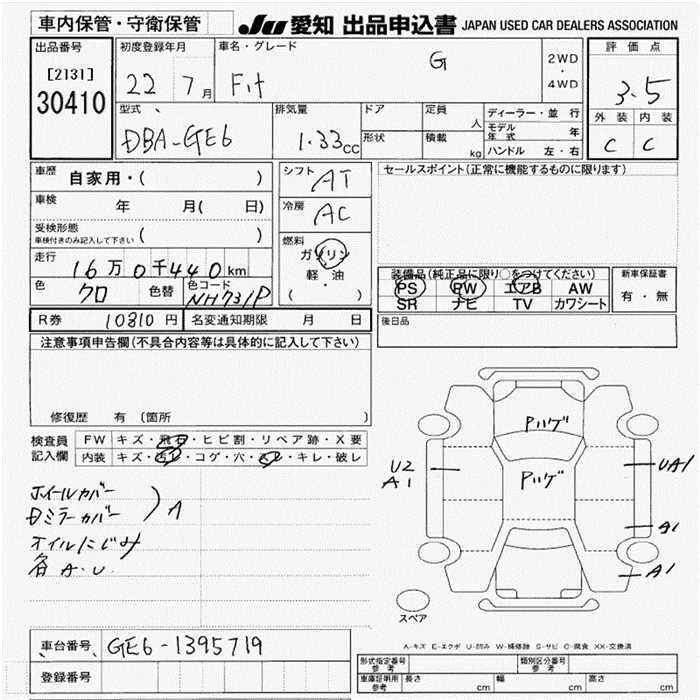 車内保管・守衛保管
JU 愛知 出品申込書 JAPAN USED CAR DEALERS ASSOCIATION
出品番号
[2131]
30410
初度登録年月
22 7月
車名・グレード
Fit G
2WD
・
4WD
評価点
3.5
外装 内装
C C
型式
DBA-GE6
排気量
1.33cc
ドア
形状
定員 人
積載 kg
ディーラー・並行
モデル年式 年
ハンドル 左・右
車歴 自家用・( )
車検 年 月( 日)
受検形態
車検付きのみ記入して下さい ( )
走行 16万0千440km
色 クロ 色替 色コード NH731P
シフト AT
冷房 AC
燃料
ガソリン
軽・油
( )
セールスポイント(正常に機能するものに限ります)
装備品(純正品に限り○をつけてください)
PS PW エアB AW
SR ナビ TV カワシート
新車保証書
有・無
後日品
R券 10810円 名変通知期限 月 日
注意事項申告欄(不具合内容等は具体的に記入して下さい)
修復歴 有 (箇所 )
検査員記入欄
FW キズ・飛石・ヒビ割・リペア跡・X要
内装 キズ・汚レ・コゲ・穴・スレ・キレ・破レ
ホイールカバー
ミラーカバー
A
オイルにじみ
各A.U
Pハゲ
Pハゲ
U2
A1
UA1
A1
A1
スペア
A-キズ E-エクボ U-凹み W-補修跡 S-サビ C-腐食 XX-交換済
車台番号 GE6-1395719
登録番号
形式指定番号 参考
類別区分番号 参考
車庫証明用 参考 長さ cm 幅 cm 高さ cm